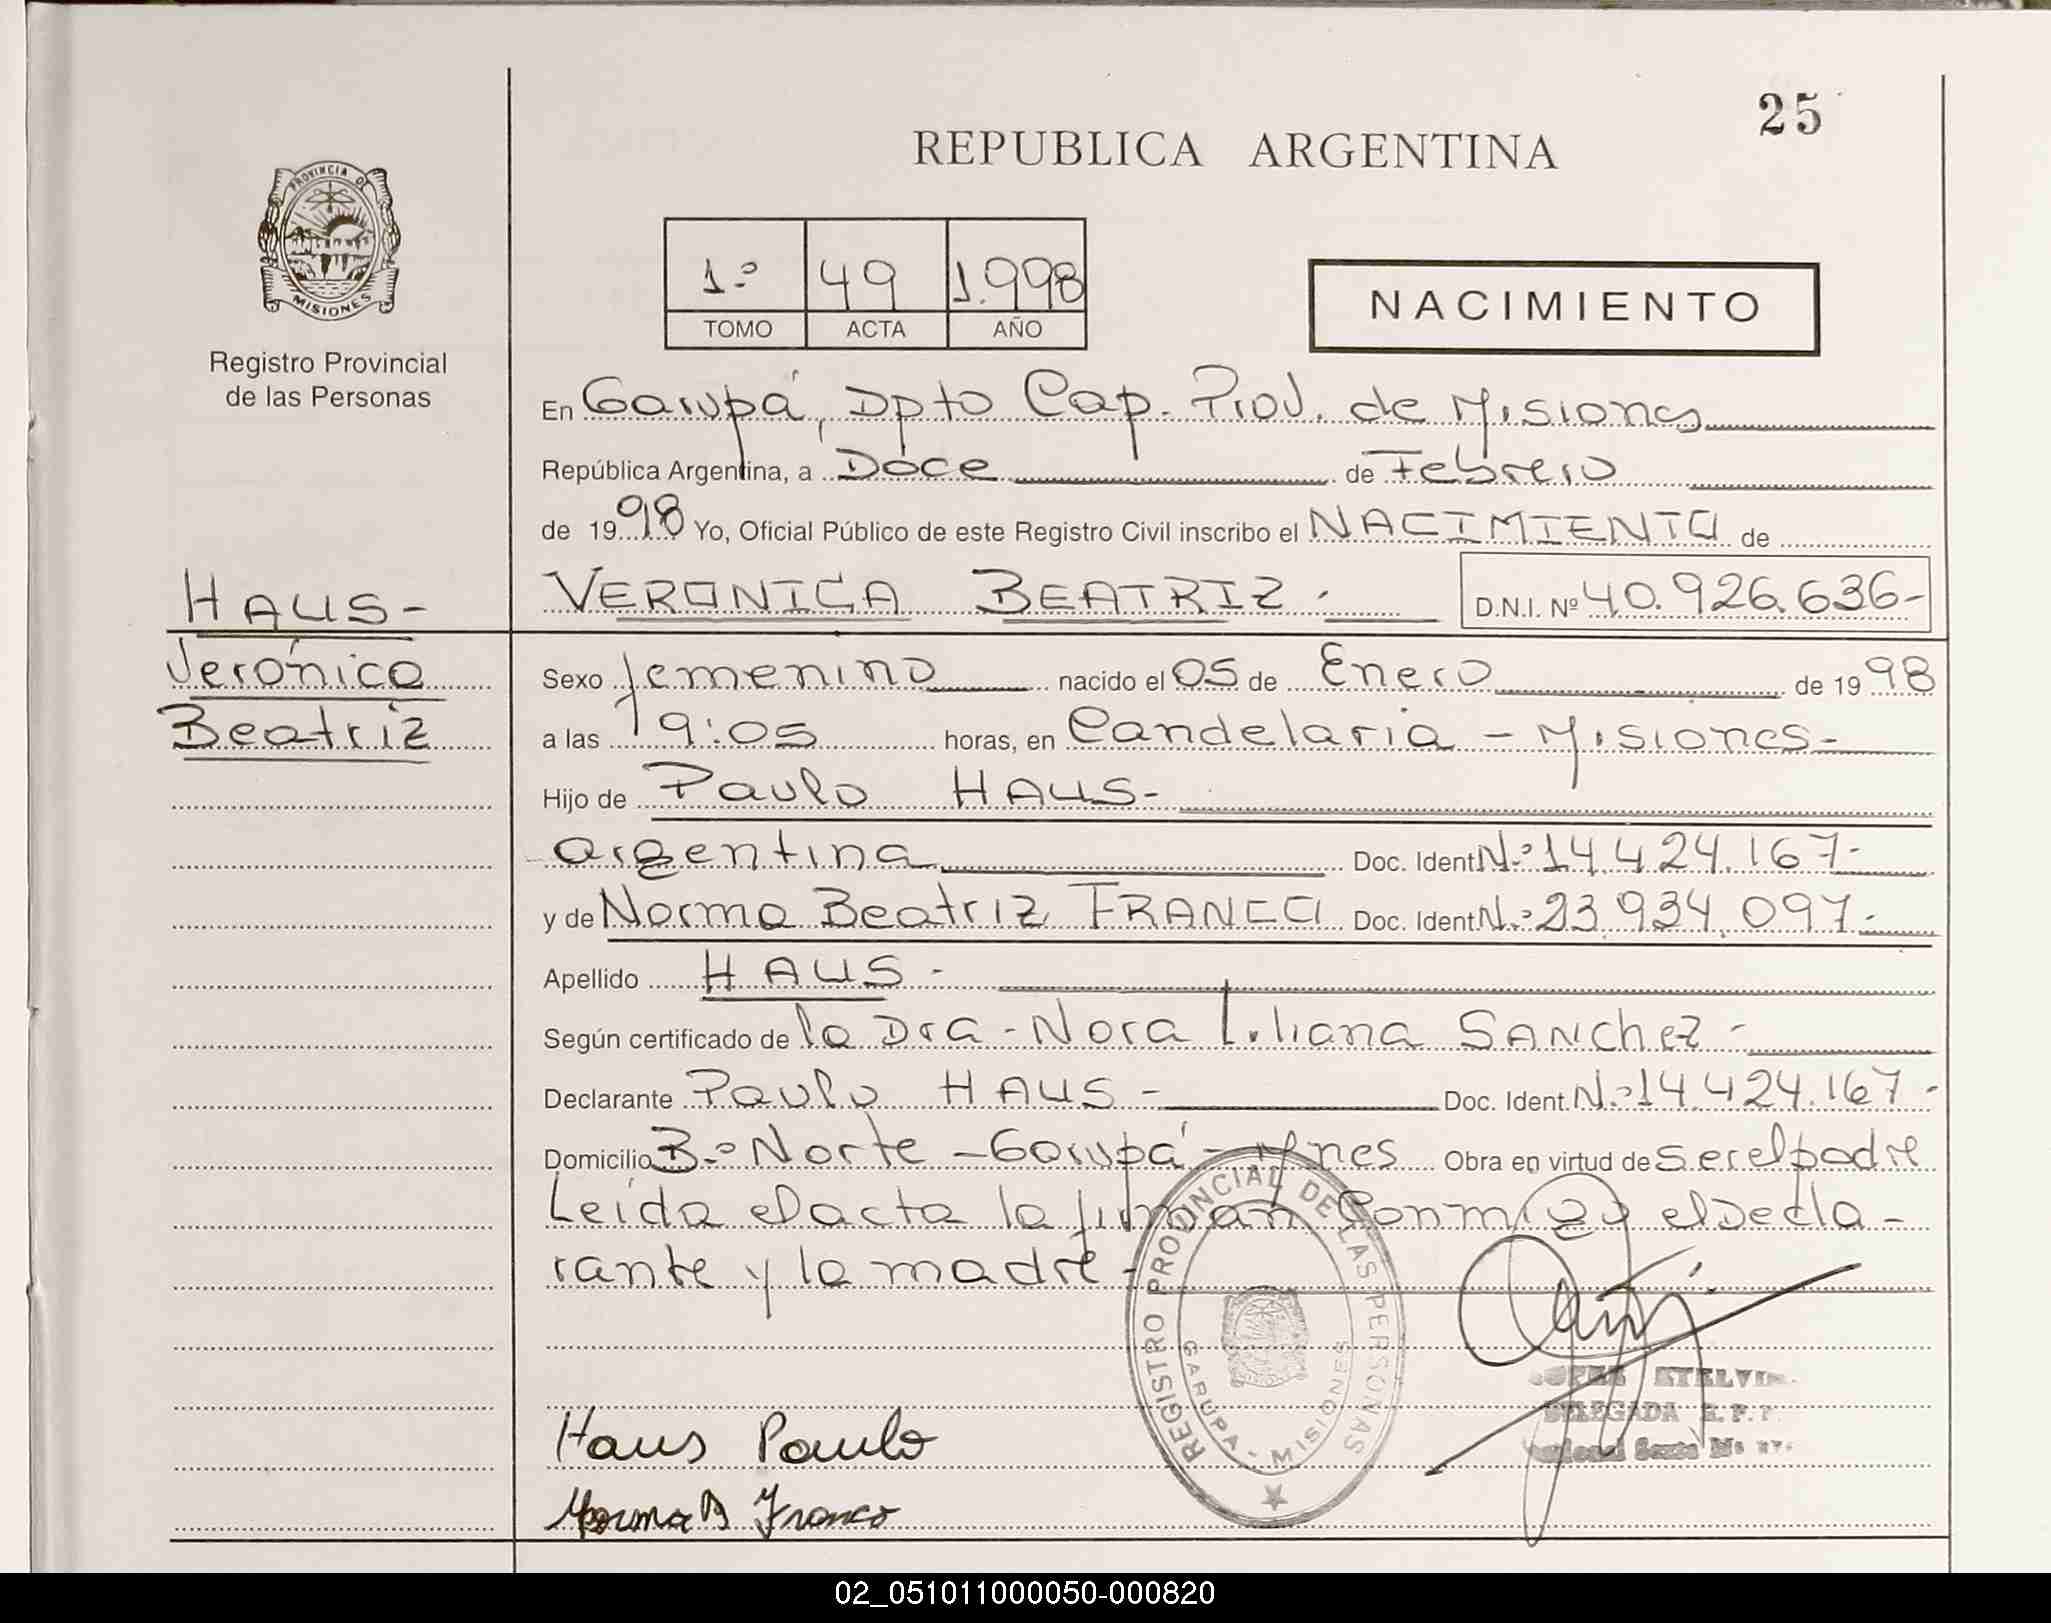 25
REPUBLICA ARGENTINA
PROVINCIA DE
MISIONES
Registro Provincial
de las Personas
1.º 49 1.998
TOMO ACTA AÑO
NACIMIENTO
En Garupá, Dpto Cap. Prov. de Misiones
República Argentina, a Doce de Febrero
de 1998 Yo, Oficial Público de este Registro Civil inscribo el NACIMIENTO de
HAUS-
Verónica
Beatriz
VERONICA BEATRIZ.- D.N.I. Nº 40.926.636-
Sexo femenino nacido el 05 de Enero de 1998
a las 19:05 horas, en Candelaria - Misiones-
Hijo de Paulo HAUS-
argentina Doc. Ident. N.º 14.424.167-
y de Norma Beatriz FRANCO Doc. Ident. N.º 23.934.097.-
Apellido HAUS-
Según certificado de la Dra-Nora Liliana SANchez-
Declarante Paulo HAUS- Doc. Ident. N.º 14.424.167-
Domicilio B.º Norte - Garupá - Mnes Obra en virtud de ser el padre
Leída el acta la firman Conmigo el Decla-
rante y la madre-
REGISTRO PROVINCIAL DE LAS PERSONAS
GARUPA - MISIONES
ETELVI
DELEGADA R. P. P.
Haus Paulo
Norma B Franco
02_051011000050-000820